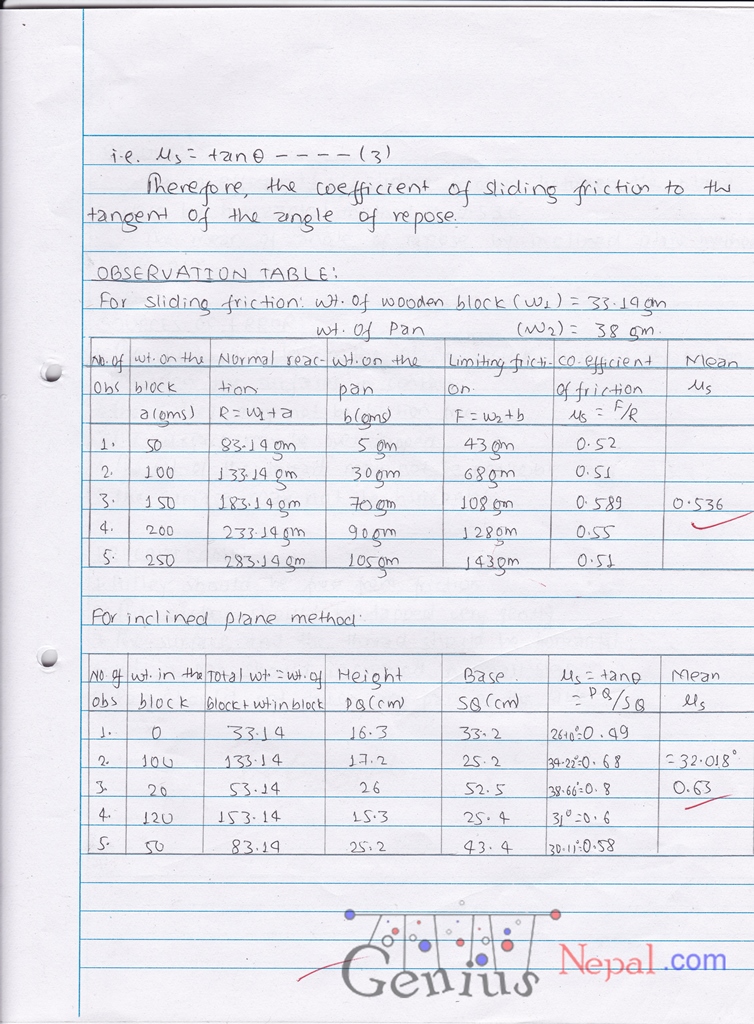 i.e. μs = tanθ ---- (3)
Therefore, the coefficient of sliding friction to the
tangent of the angle of repose.
OBSERVATION TABLE:
For sliding friction: wt. of wooden block (w1) = 33.14gm
wt. of Pan (w2) = 38 gm.
No. of obs | wt. on the block a(gms) | Normal reaction R = w1+a | wt. on the pan b(gms) | Limiting friction. F = w2+b | co-efficient of friction μs = F/R | Mean μs
1. | 50 | 83.14gm | 5gm | 43gm | 0.52
2. | 100 | 133.14gm | 30gm | 68gm | 0.51
3. | 150 | 183.14gm | 70gm | 108gm | 0.589 | 0.536
4. | 200 | 233.14gm | 90gm | 128gm | 0.55
5. | 250 | 283.14gm | 105gm | 143gm | 0.51
For inclined plane method.
No of obs | wt. in the block | Total wt = wt. of block + wt in block | Height PQ(cm) | Base. SQ(cm) | μs = tanθ = PQ/SQ | Mean μs
1. | 0 | 33.14 | 16.3 | 33.2 | =0.49
2. | 100 | 133.14 | 17.2 | 25.2 | 34.22°=0.68 | =32.018°
3. | 20 | 53.14 | 26 | 52.5 | 38.66°=0.8 | 0.63
4. | 120 | 153.14 | 15.3 | 25.4 | 31°=0.6
5. | 50 | 83.14 | 25.2 | 43.4 | 30.11°=0.58
Genius Nepal.com